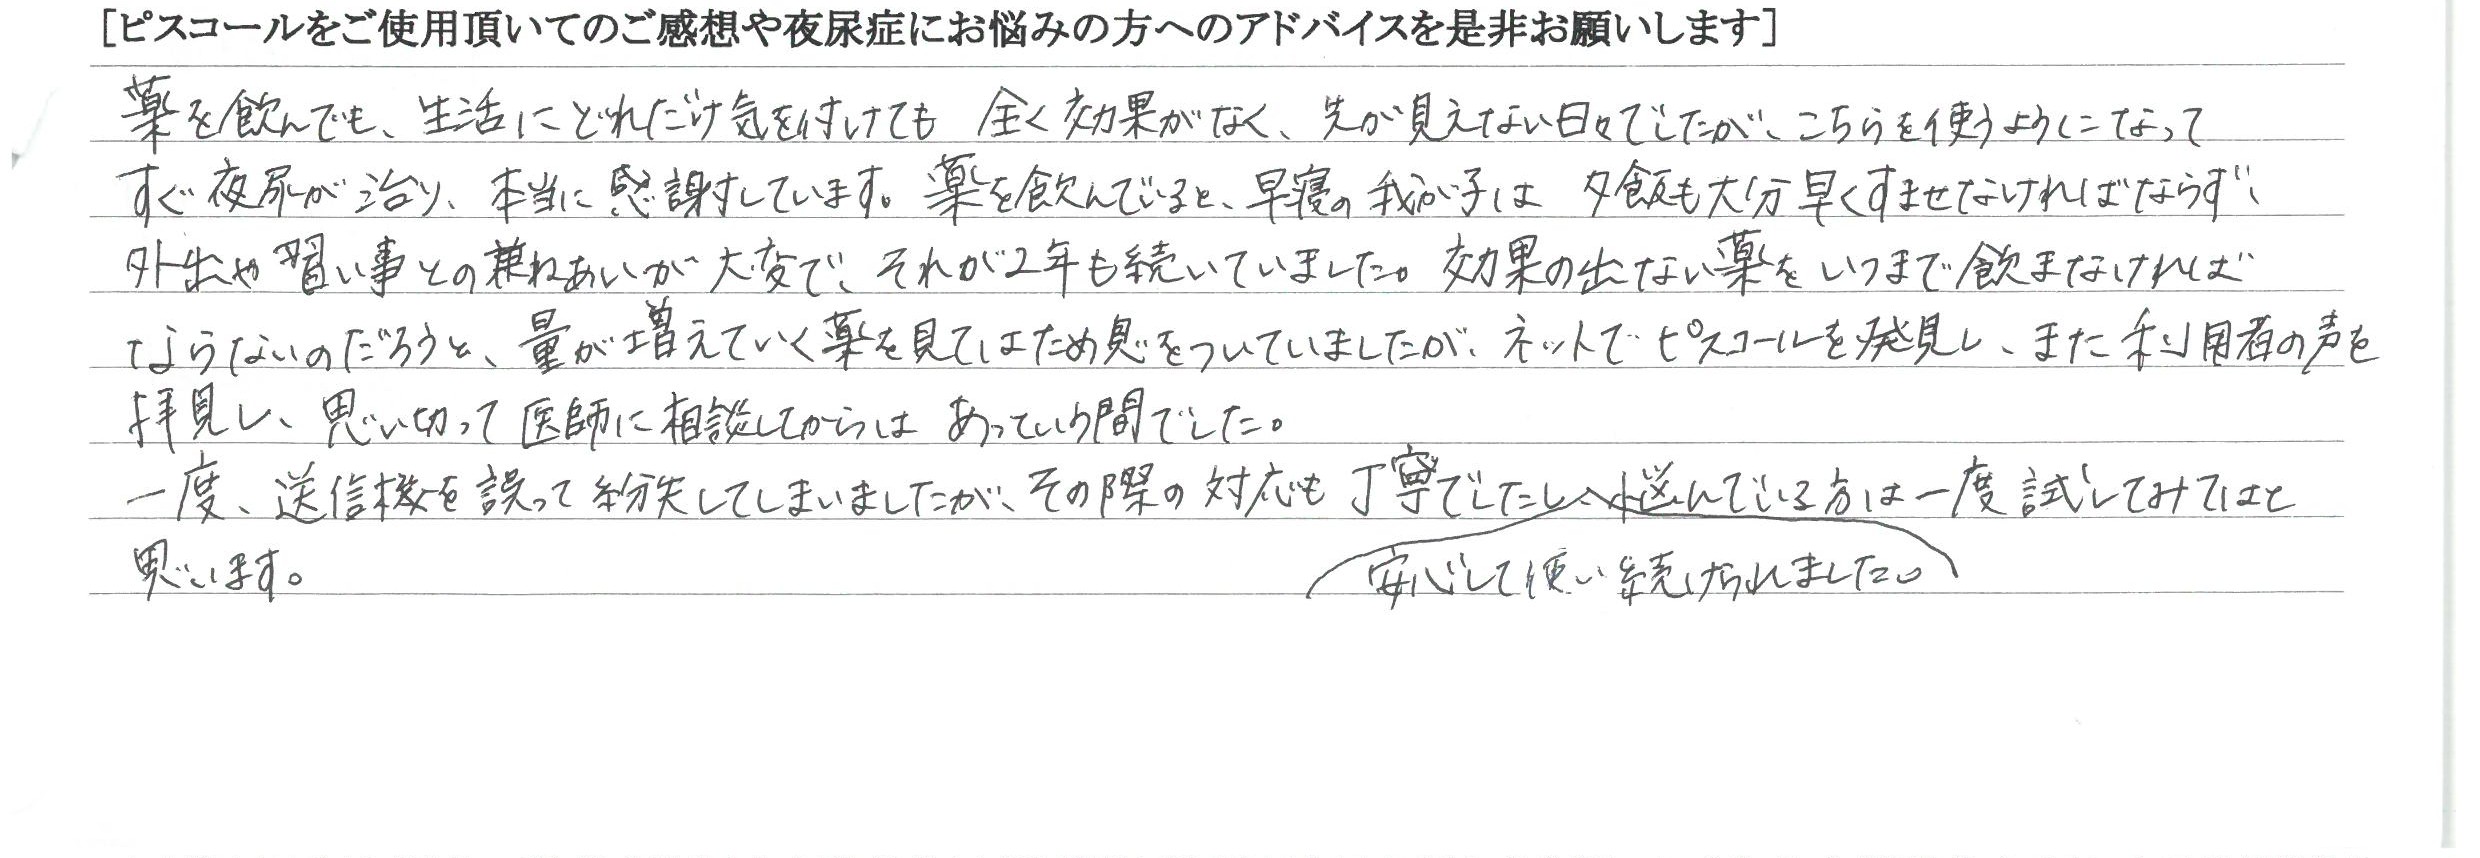 [ピスコールをご使用頂いてのご感想や夜尿症にお悩みの方へのアドバイスを是非お願いします]
薬を飲んでも、生活にどれだけ気を付けても 全く効果がなく、先が見えない日々でしたが、こちらを使うようになって
すぐ夜尿が治り、本当に感謝しています。薬を飲んでいると、早寝の我が子は 夕飯も大分早くすませなければならず、
外出や習い事との兼ねあいが大変で、それが2年も続いていました。効果の出ない薬をいつまで飲まなければ
ならないのだろうと、量が増えていく薬を見てはため息をついていましたが、ネットでピスコールを発見し、また利用者の声を
拝見し、思い切って医師に相談してからは あっという間でした。
一度、送信機を誤って紛失してしまいましたが、その際の対応も丁寧でしたし、悩んでいる方は一度試してみてはと
安心して使い続けられました。
思います。